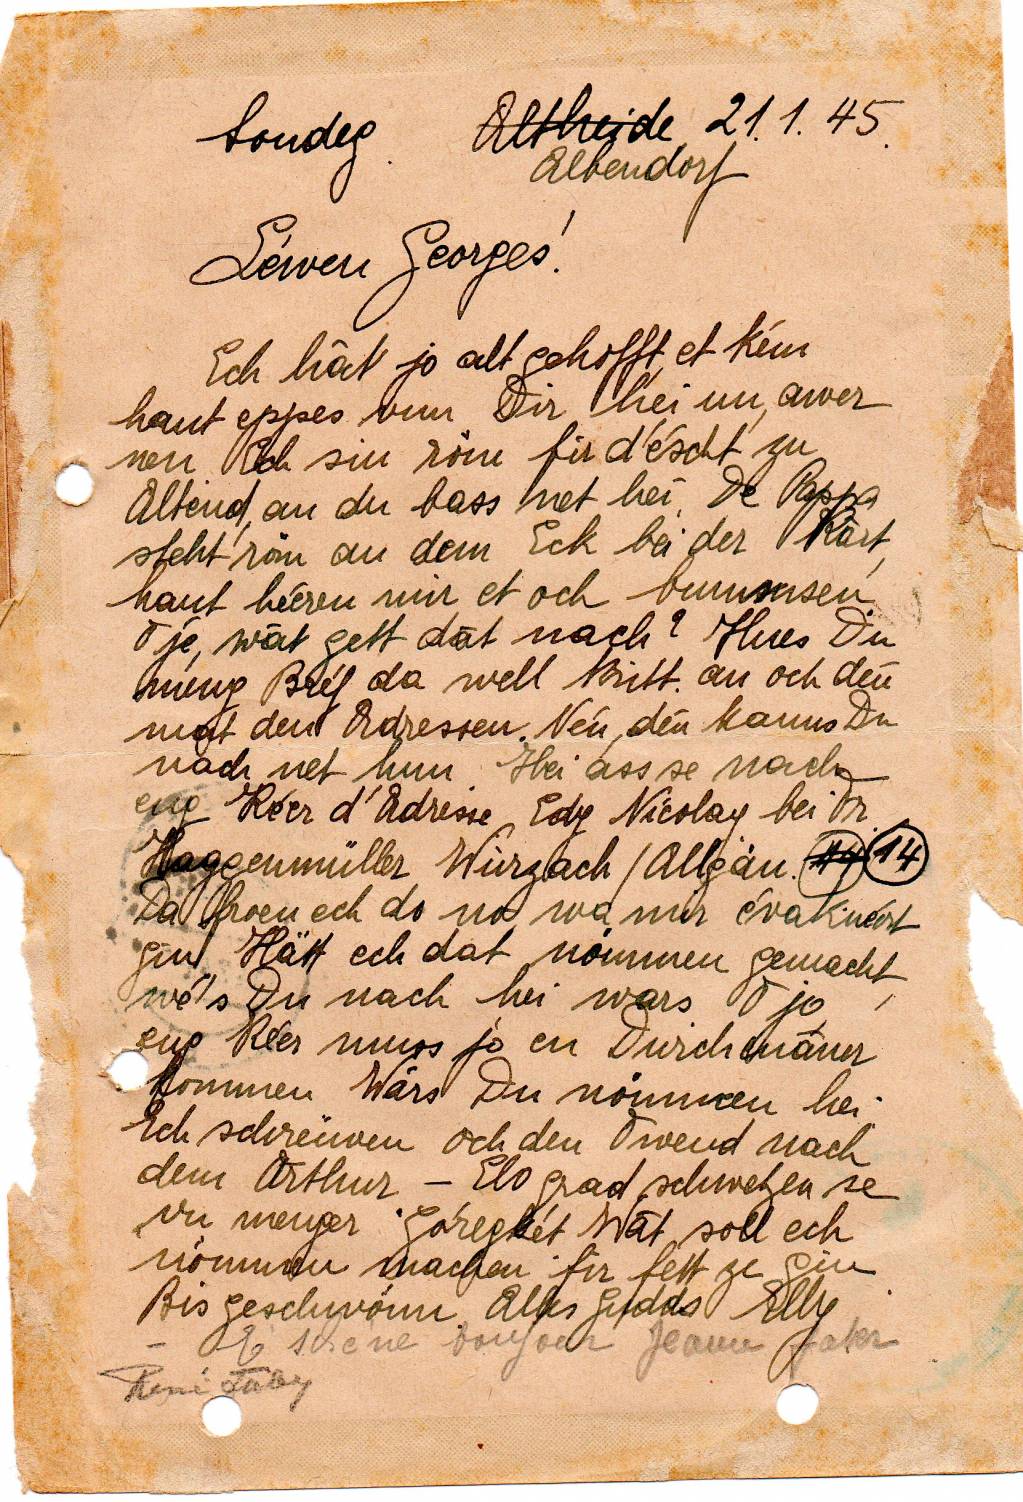 Sondeg. Altheide 21.1.45.
Albendorf
Léiwen Georges!
Ech hät jo alt gehofft, et kém
haut eppes vun Dir hei un, awer
nen. Ech sin röm fir d'éscht zu
Altend, an du bass net hei. De Pappa
steht rön an dem Eck bei der Kart,
haut héeren mir et och bummsen.
O je, wät gett dât nach? Hues Du
méng Bréf da well kritt. an och dén
mat den Adressen. Nén, dén kanns Du
nach net hun. Hei ass se nach
eng Kéer d'Adresse, Edy Nicolay bei Dr.
Haggenmüller Wurzach / Allgäu. 14
Da froen ech do no wa mir évakuéert
gin. Hätt ech dat nömmen gemacht
wé's Du nach hei wars. O jo,
eng Kéer muss jo en Durchenäner
kommen. Wärs Du nömmen hei.
Ech schreiwen och den Owend nach
dem Arthur – Elo grad schwetzen se
vu menger Mât soll ech
nömmen machen fir fett ze gin
Bis geschwönn. Alles Gudds Elly
– E schéne bonjour Jeanne
René